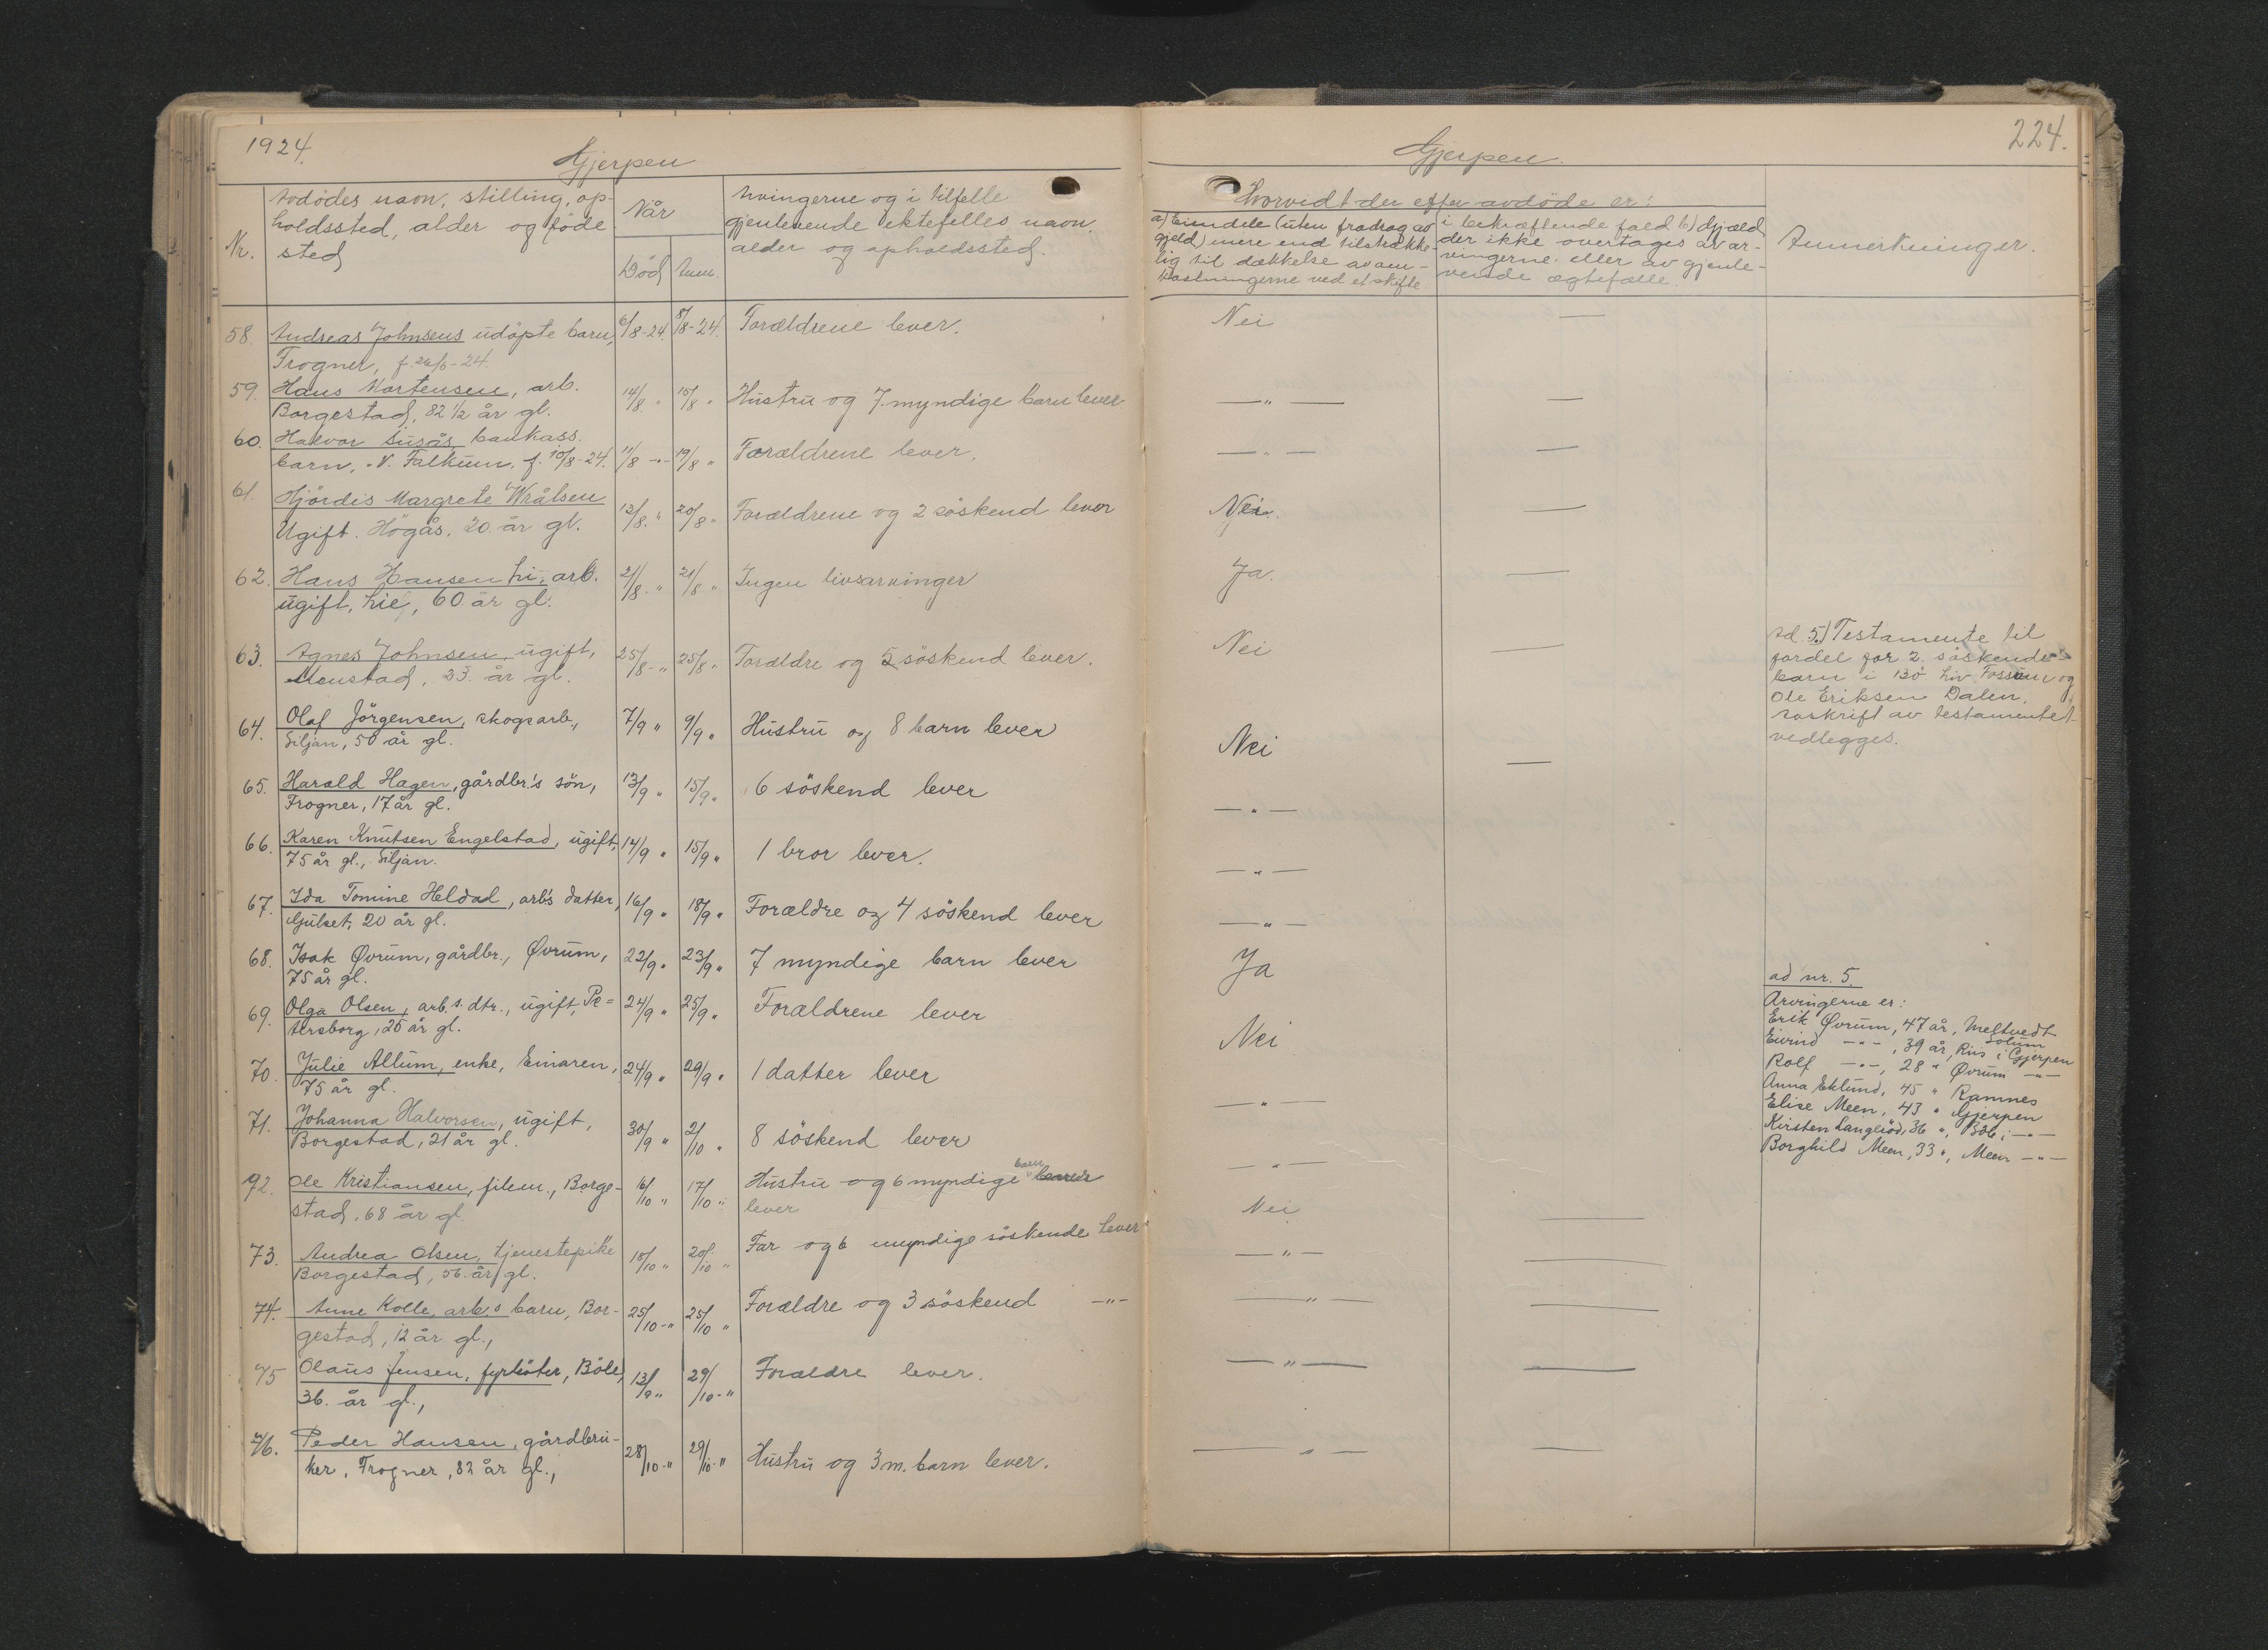 1924.
Gjerpen
Nr.
Avdödes navn, stilling, op-
holdssted, alder og föde
sted
Når
Död
Anm.
Arvingerne og i tilfelle
gjenlevende ektefelles navn,
alder og opholdssted.
58. Andreas Johnsens udöpte barn, 6/8-24. 8/8-24. Forældrene lever.
Frogner, f. 26/6-24.
59. Hans Mortensen, arb. 14/8 " 15/8 " Hustru og 7 myndige barn lever
Borgestad, 82 1/2 år gl.
60. Halvor Liisås bankass.
barn, N. Falkum. f. 10/8-24. 11/8 -"- 19/8 " Forældrene lever.
61. Hjördis Margrete Wrålsen
Ugift. Högås. 20 år gl. 12/8. " 20/8 " Forældrene og 2 söskend lever
62. Hans Hansen Li, arb. 21/8. " 21/8 " Ingen livsarvinger
ugift, Lie, 60 år gl.
63. Agnes Johnsen, ugift, 25/8-" 25/8 " Forældre og 5 söskend lever.
Menstad, 23. år gl.
64. Olaf Jörgensen, skogsarb., 7/9 " 9/9 " Hustru og 8 barn lever
Siljan, 50 år gl.
65. Harald Hagen, gårdbr.'s sön, 13/9 " 15/9 " 6 söskend lever
Frogner, 17 år gl.
66. Karen Knutsen Engelstad, ugift, 14/9 " 15/9 " 1 bror lever.
75 år gl., Siljan.
67. Ida Tomine Heldal, arb's datter, 16/9 " 18/9 " Forældre og 4 söskend lever
Gulset, 20 år gl.
68. Isak Øvrum, gårdbr., Øvrum, 22/9 " 23/9 " 7 myndige barn lever
75 år gl.
69. Olga Olsen, arb.s. dtr., ugift, Pe= 24/9 " 25/9 " Forældrene lever
tersborg, 25 år gl.
70. Julie Allum, enke, Einaren, 24/9 " 29/9 " 1 datter lever
75 år gl.
71. Johanna Halvorsen, ugift, 30/9 " 2/10 " 8 söskend lever
Borgestad, 21 år gl.
92. Ole Kristiansen, filem., Borge- 16/10 " 17/10 " Hustru og 6 myndige barn
stad, 68 år gl. lever
73. Andrea Olsen, tjenestepike 18/10 " 20/10 " Far og 6 myndige söskende lever
Borgestad, 56. år gl.
74. Anne Kolle, arb.s barn, Bor- 25/10-" 25/10 " Forældre og 3 söskend -"-
gestad, 12 år gl.,
75 Olaus Jensen, fyrböter, Böle, 13/9 " 29/10-" Forældre lever.
36. år gl.,
76. Peder Hansen, gårdbru- 28/10-" 29/10-" Hustru og 3 m. barn lever.
ker, Frogner, 82 år gl.,
224.
Gjerpen.
Hvorvidt der efter avdöde er:
a) Eiendele (uten fradrag av
gjeld) mere end tilstrække-
lig til dækkelse av om-
kostningerne ved et skifte
i bekræftende fald b) Gjæld
der ikke overtages av ar-
vingerne eller av gjenle-
vende ægtefælle.
Anmerkninger.
Nei —
— " — —
— " — —
Nei. —
Ja. —
Nei —
Nei —
— " —
— " —
— " —
Ja
Nei
— " —
— " —
Nei —
— " — —
— " — —
— " — —
— " — —
Ad. 5.) Testamente til
fordel for 2 söskende-
barn i Liv Fossum og
Ole Eriksen Dalen.
Avskrift av testamentet
vedlegges.
ad nr. 5.
Arvingerne er:
Erik Øvrum, 47 år, Meltvedt
Solum
Eivind -"-, 39 år, Riis i Gjerpen
Rolf -"-, 28 " Øvrum -"-
Anna Eklund, 45 " Ramnes
Elise Meen, 43 " Gjerpen
Kirsten Langlöd, 36 ", Böle i -"-
Borghild Meen, 33 ", Meen -"-